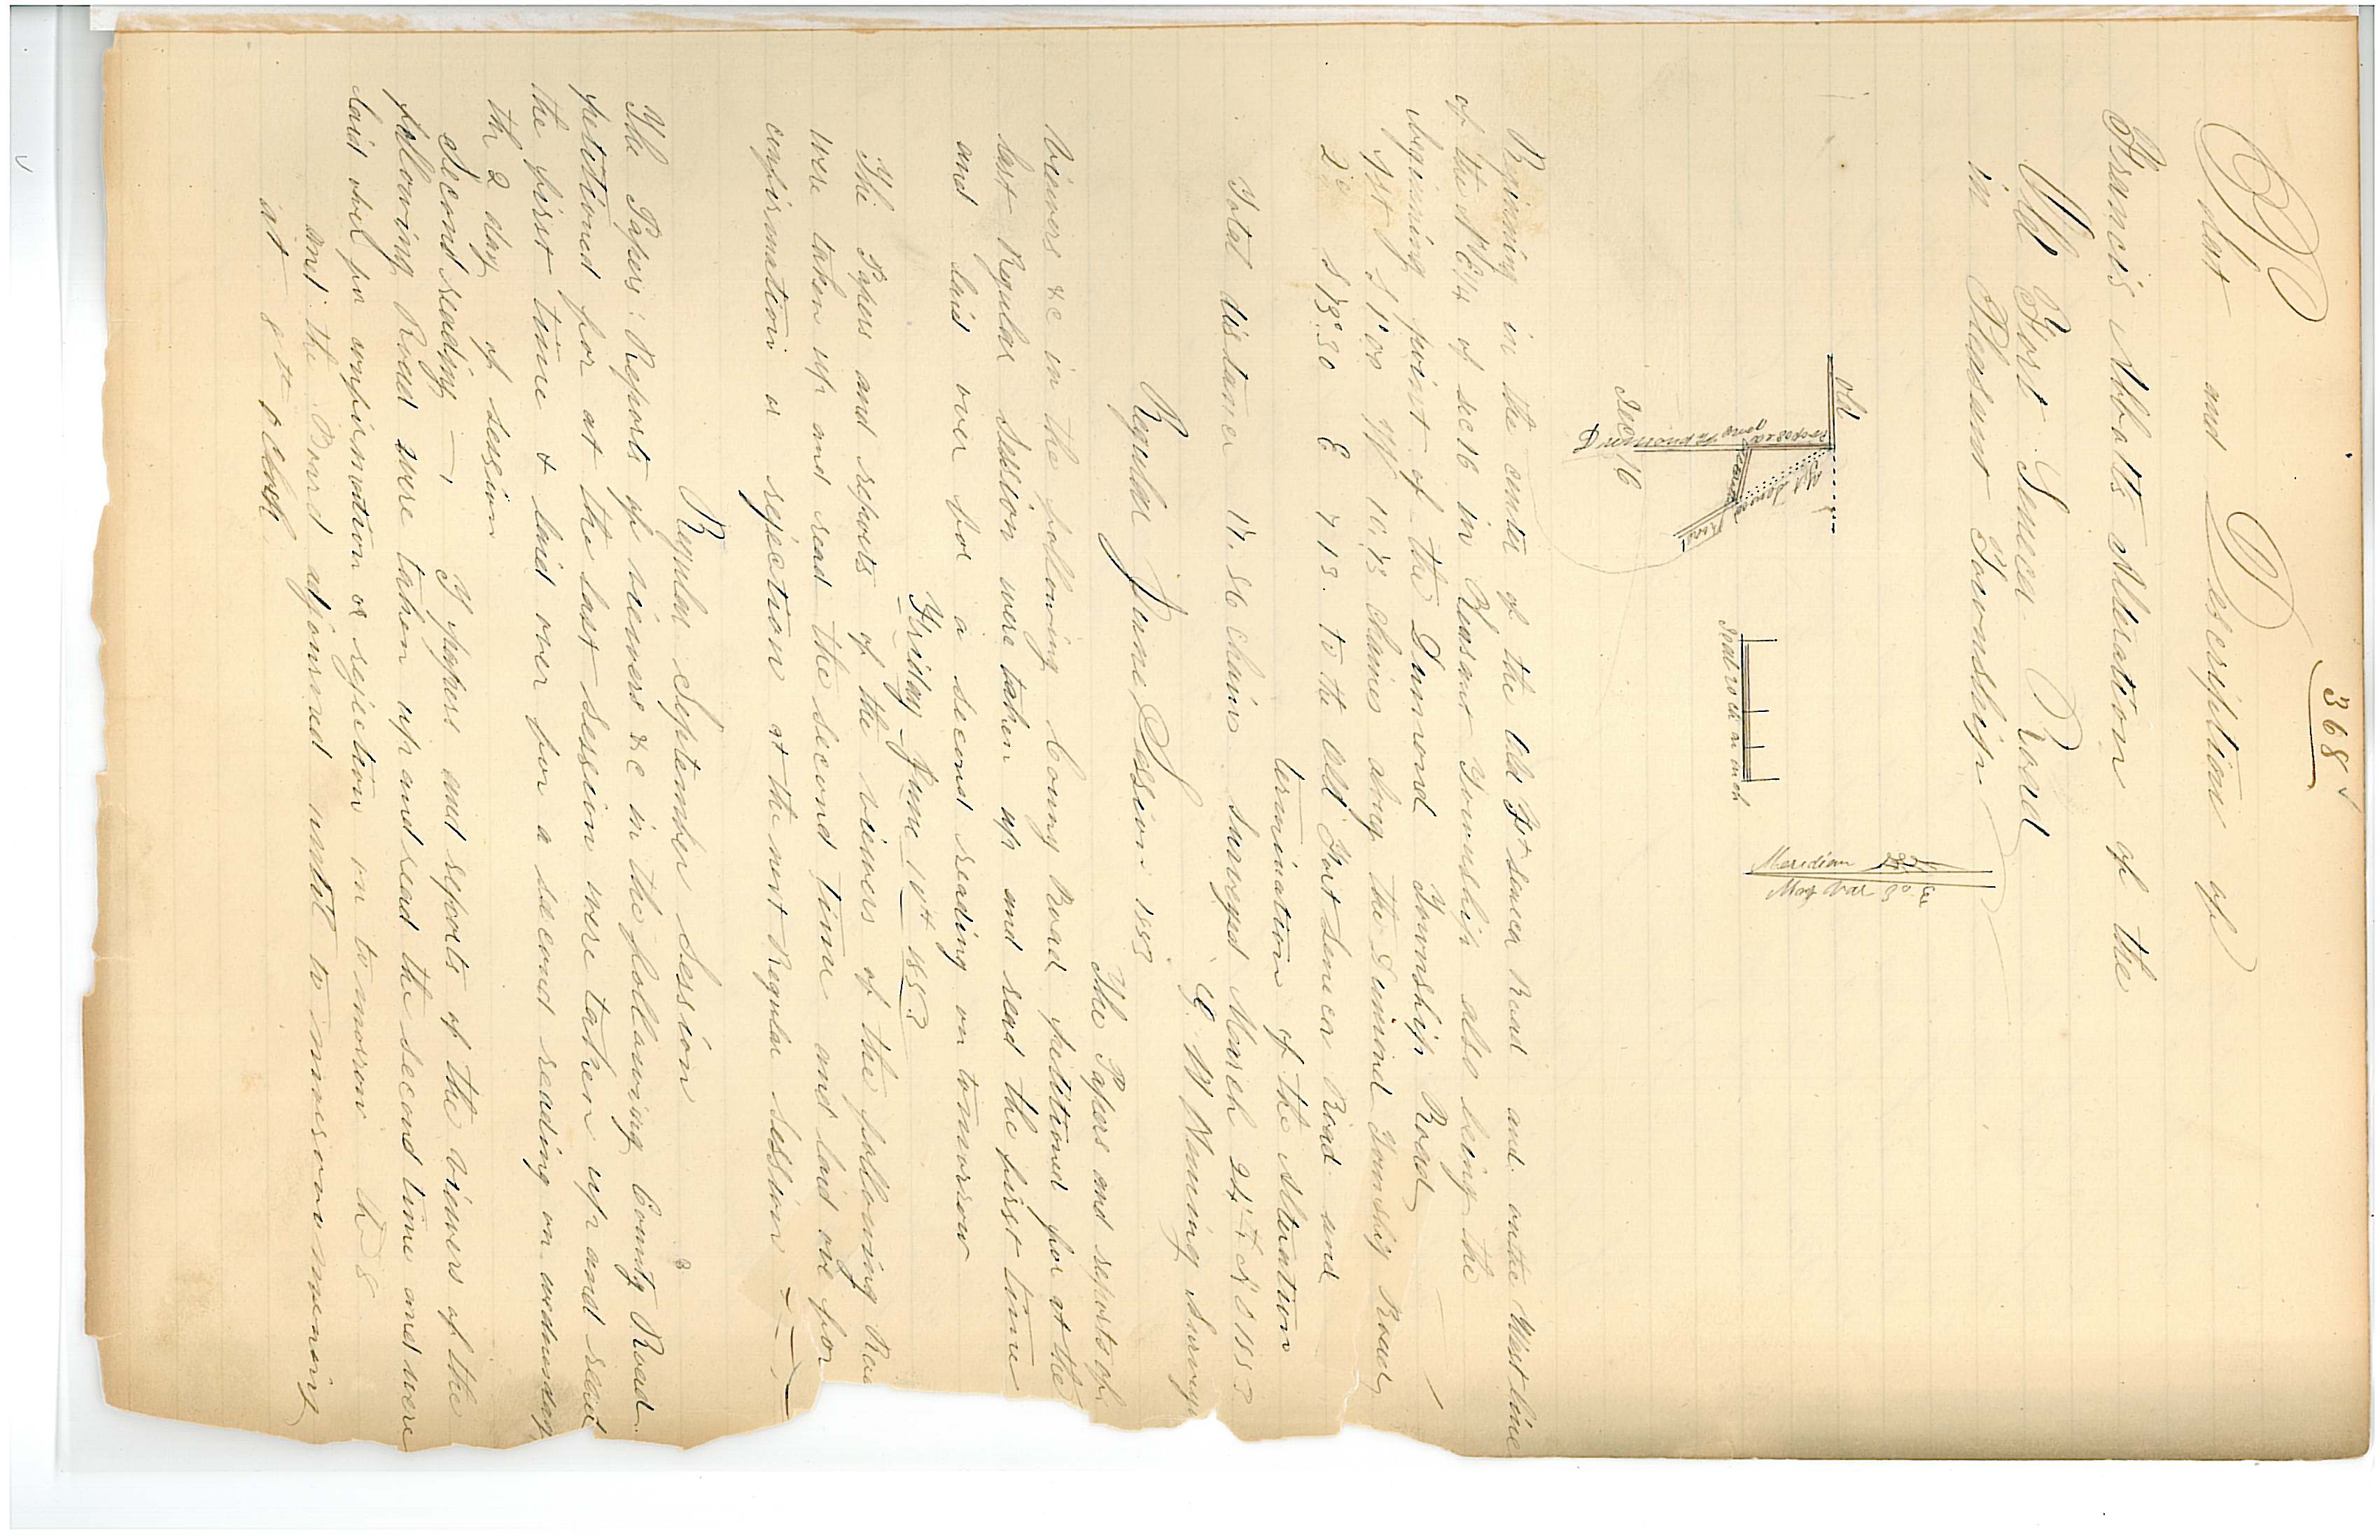 368
Plat and Description of
Francis Abbotts Alteration of the
Old Fort Seneca Road
in Pleasant Township
Old
proposed
Old Road
Road
Sec 16
Scale 20 ch an inch
Meridian
Mag Var
Beginning in the center of the Old Ft Seneca Road and on the West line
of the NE 1/4 of sec 16 in Pleasant Township also being the
beginning point of the Dumond Township Road
1st S 1°00 W 10.73 chains along the Dumond Township Road
2d E 7 13. to the Old Fort Seneca Road and
termination of the Alteration
Total distance chains Surveyed March 24th
W Surveyor
Regular June Session 185
The Papers and reports of
viewers &c in the following County Road petitioned for at the
last Regular Session were taken up and read the first time
and laid over for a second reading on tomorrow
Friday June 10th 1853
The Papers and reports of the viewers of the following Roa
were taken up and read the second time and laid over for
confirmation or rejection at the next Regular Session
Regular September Session
The Papers Reports of viewers &c in the following County Road
petitioned for at the last session were taken up and read
the first time & laid over for a second reading on wednesday
th 2 day of session
Second reading papers and reports of the viewers of the
following Road were taken up and read the second time and were
laid over for confirmation or rejection on to morrow
and the Board adjourned untill to morrow morning
at 8 Oclock